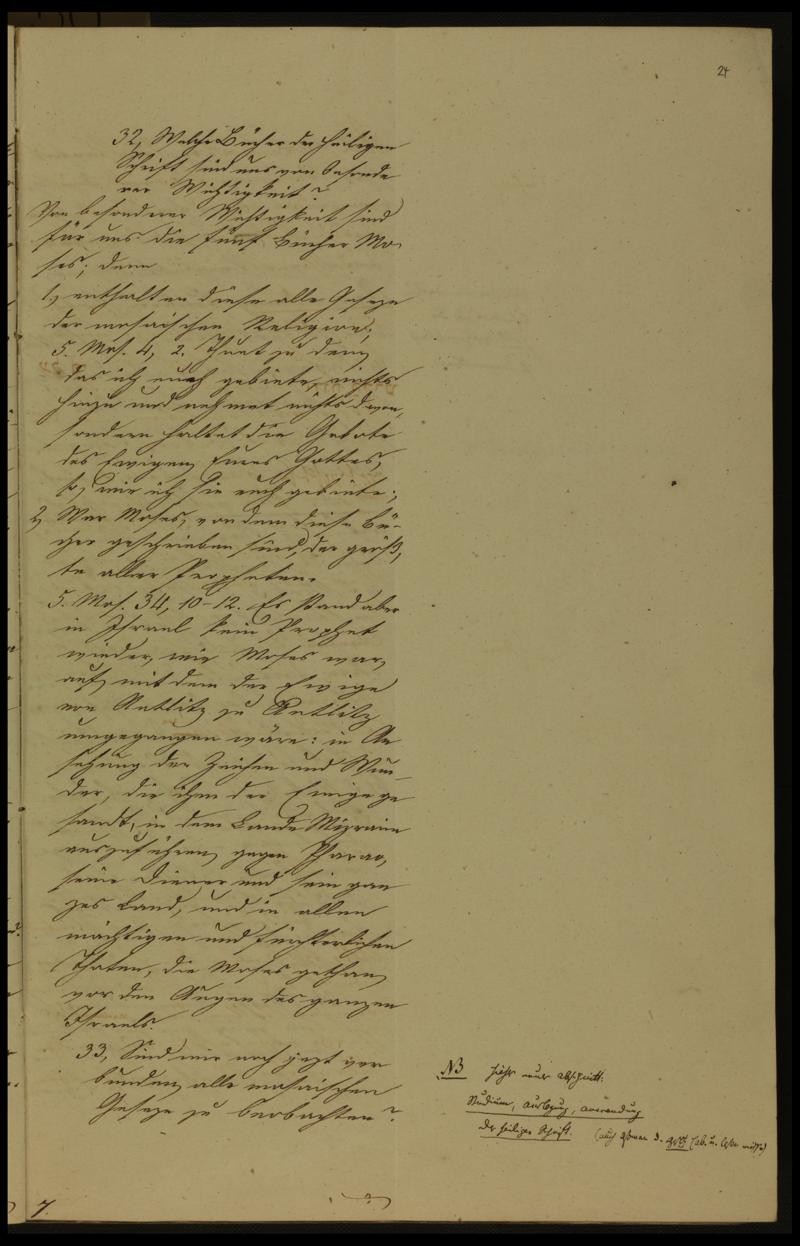 24
32, Welche Bücher der heiligen
Schrift sind uns von besonde
rer Wichtigkeit?
Von besonderer Wichtigkeit sind
für uns die fünf Bücher Mo
ses; denn
1, enthalten diese alle Geseze
der mosaischen Religion;
5. Mos. 4, 2. Thuet zu dem,
das ich euch gebiete, nichts
hinzu und nehmet nichts davon,
sondern haltet die Gebote
des Ewigen, Eures Gottes,
so, wie ich sie euch gebiete;
2, War Moses, von dem diese Bü-
cher geschrieben sind, der größ,
te aller Propheten.
5. Mos. 34, 10-12. Es stand aber
in Israel kein Prophet
wieder, wie Moses war,
auf, mit dem der Ewige
von Antlitz zu Antlitz
umgegangen wäre: in An
sehung der Zeichen und Wun-
der, die ihm der Ewige ge
sandt, in dem Lande Mizraim
auszuführen, gegen Pharao,
seine Diener und sein gan
zes Land, und in allen
mächtigen und fürchterlichen
Thaten, die Moses gethan,
vor den Augen des ganzen
Israels
33, Sind wir noch jezt ver
bunden, alle mosaischen
Geseze zu beobachten?
NB neuer Abschnitt:
Studium, Auslegung, Anwendung
der heiligen Schrift. (auch
7.